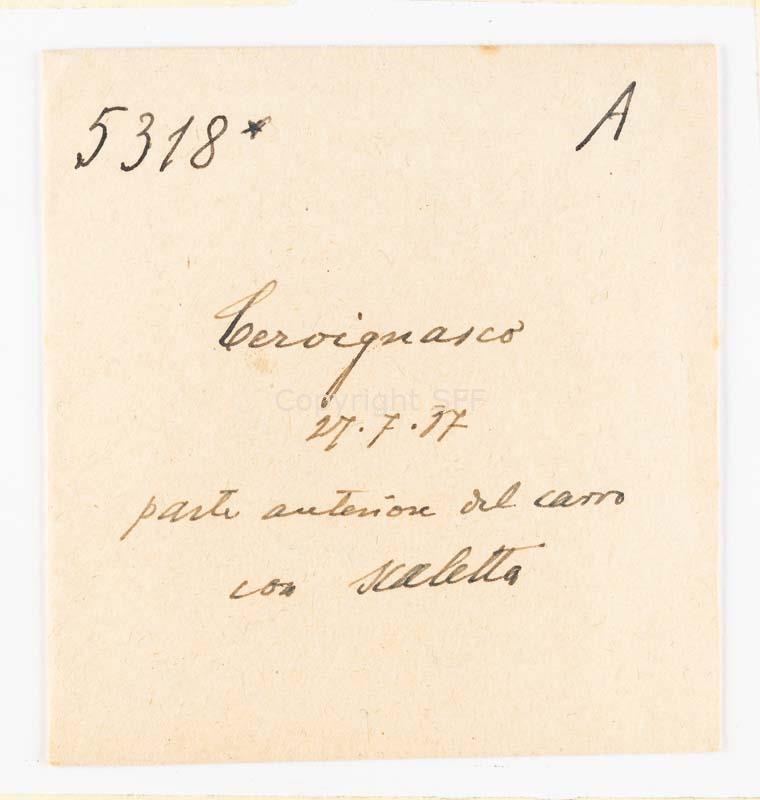 5318* A
Cervignasco
Copyright SFF
27.7.37
parte anteriore del carro
con scaletta